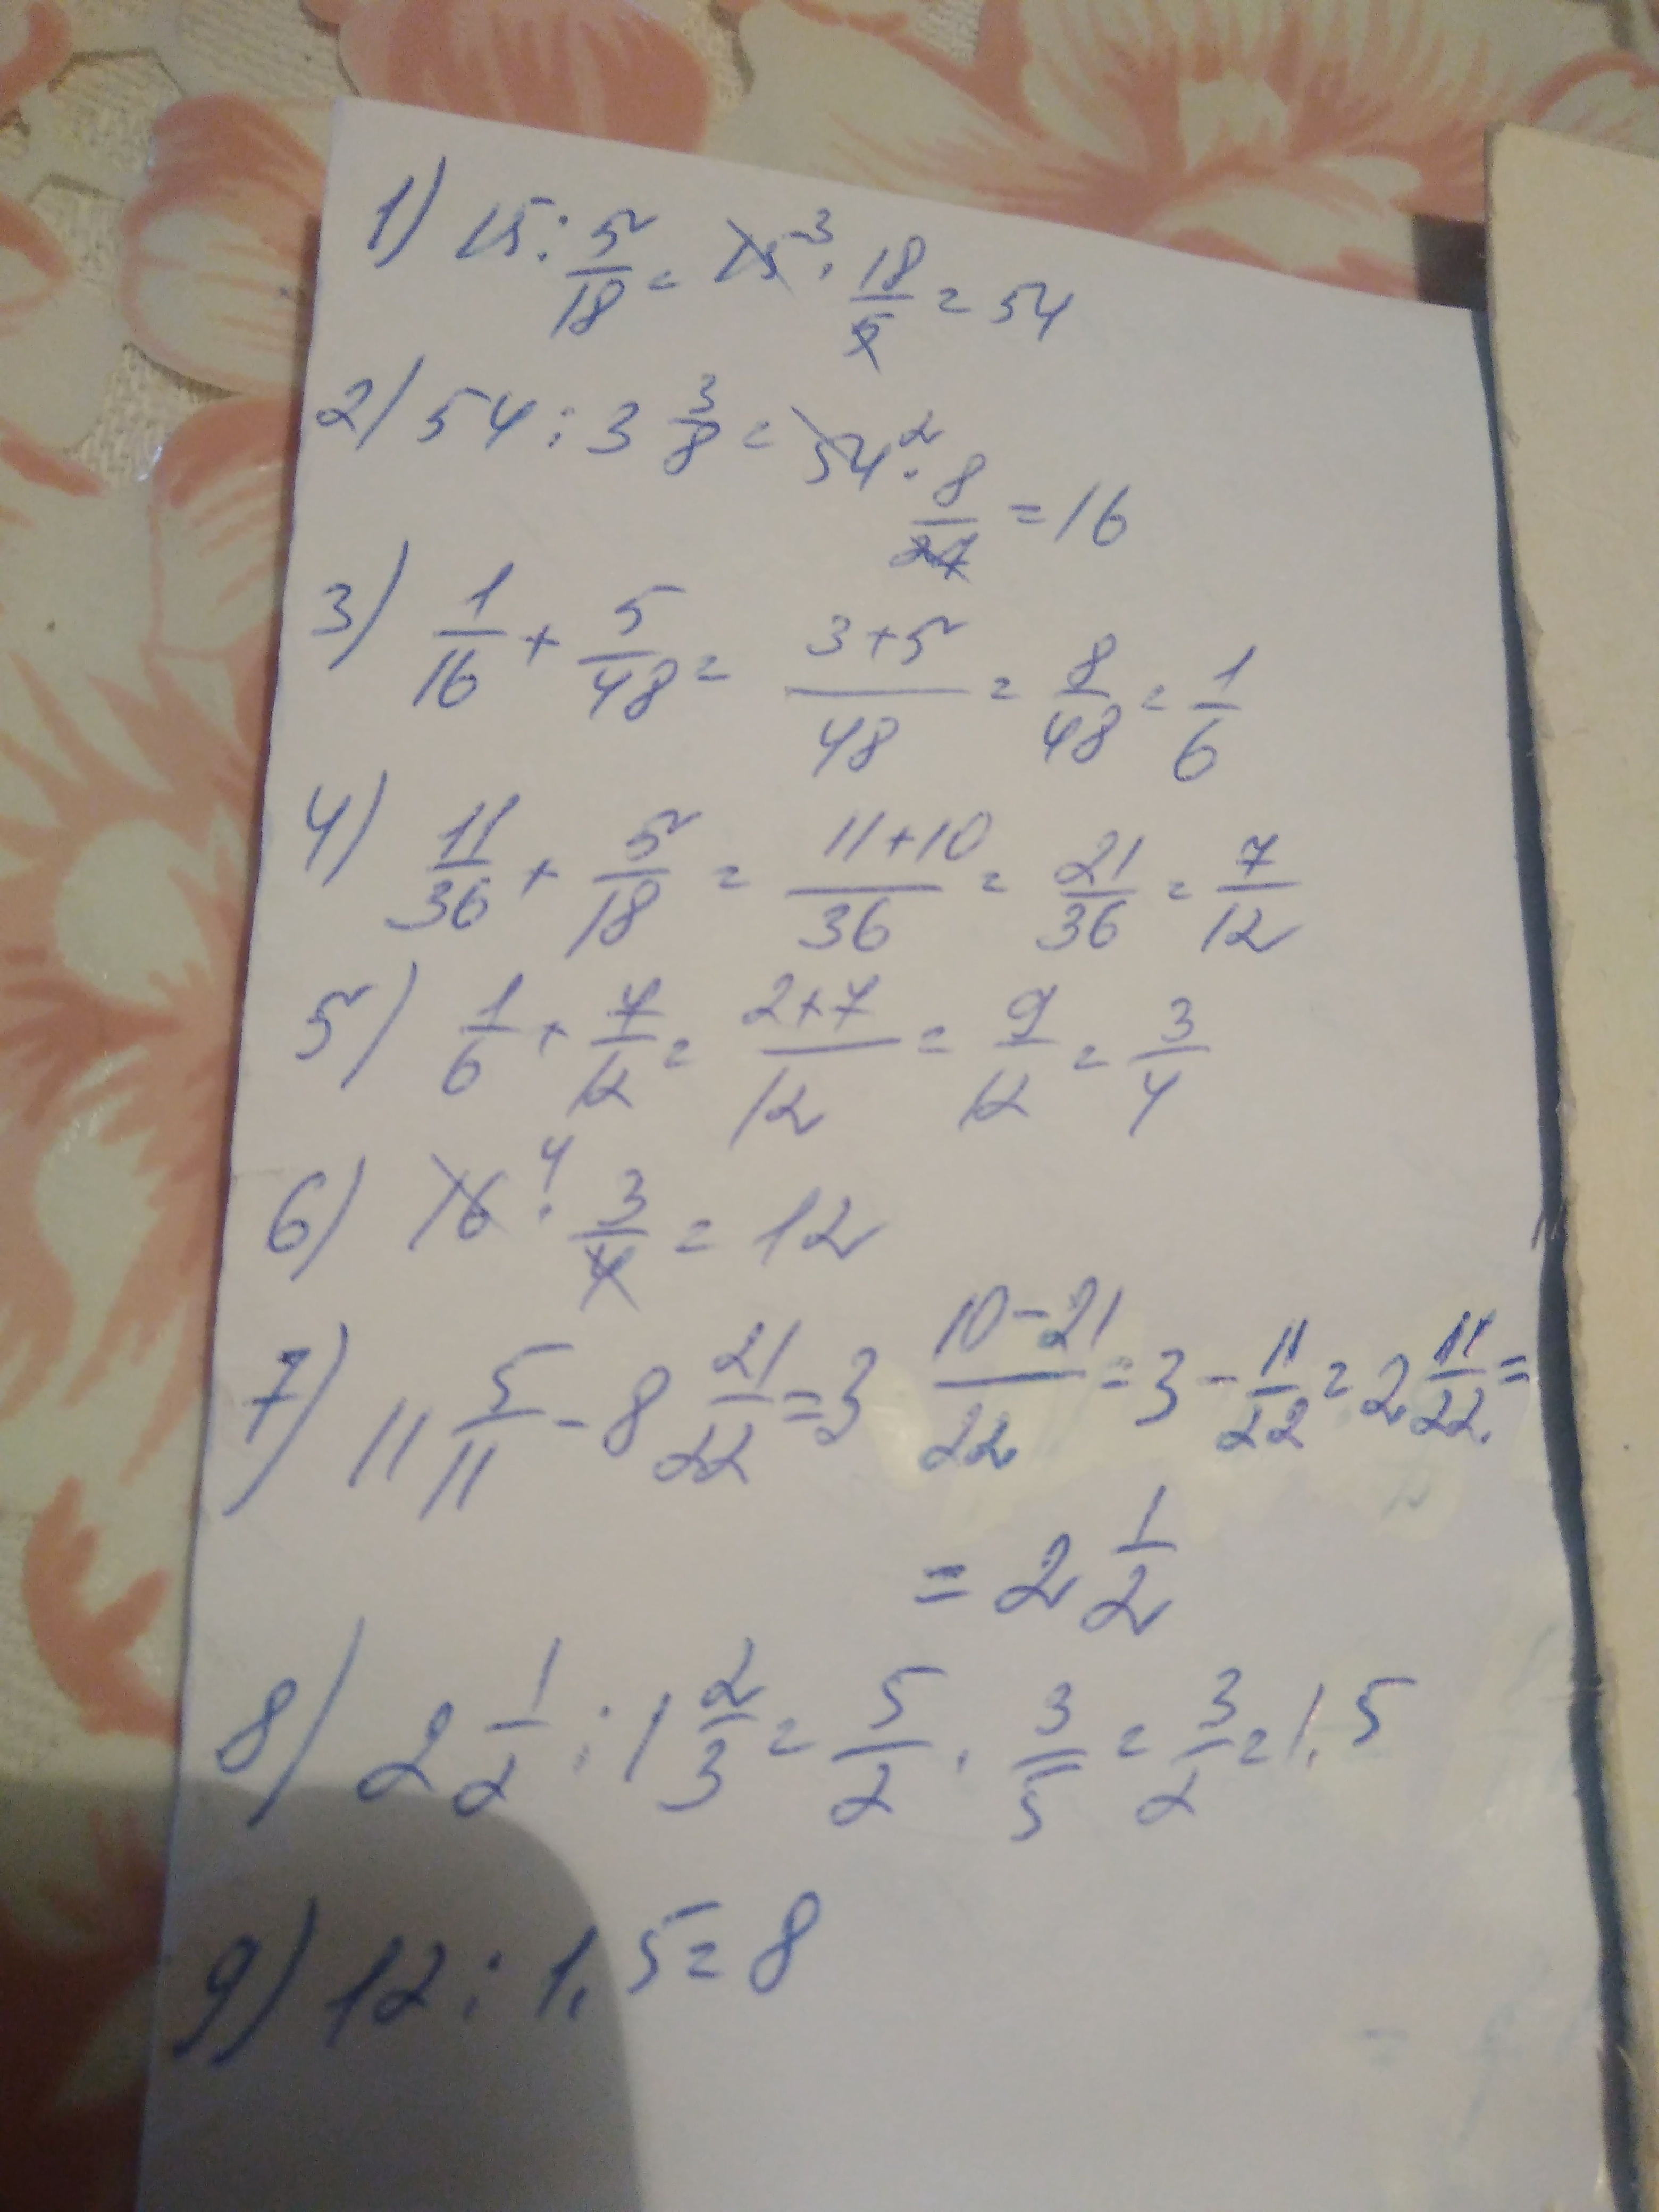 1) 15 : 5/18 = 15 3 · 18/5 = 54
2) 54 : 3 3/8 = 54 2 · 8/27 = 16
3) 1/16 + 5/48 = 3+5/48 = 8/48 = 1/6
4) 11/36 + 5/18 = 11+10/36 = 21/36 = 7/12
5) 1/6 + 7/12 = 2+7/12 = 9/12 = 3/4
6) 16 4 · 3/4 = 12
7) 11 5/11 - 8 21/22 = 3 10-21/22 = 3 - 11/22 = 2 11/22 =
= 2 1/2
8) 2 1/2 : 1 2/3 = 5/2 · 3/5 = 3/2 = 1,5
9) 12 : 1,5 = 8